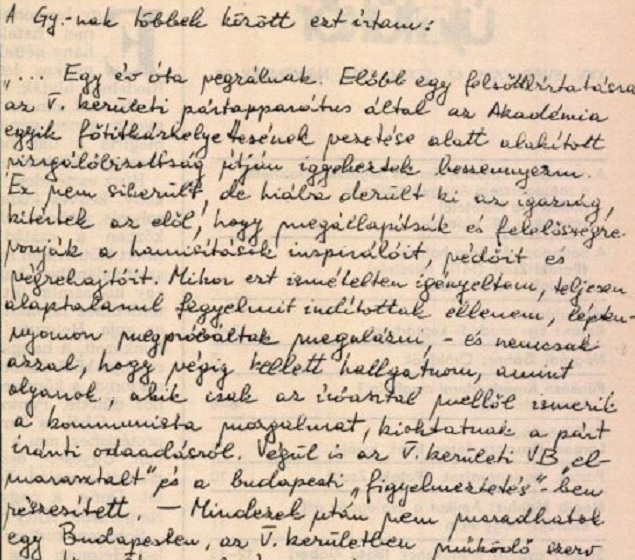 A Gy.-nak többek között ezt írtam:
"... Egy év óta vegzálnak. Előbb egy felsőbb utasításra
az V. kerületi pártapparátus által az Akadémia
egyik főtitkárhelyettesének vezetése alatt alakított
vizsgálóbizottság útján igyekeztek beszennyezni.
Ez nem sikerült, de hiába derült ki az igazság,
kitértek az elől, hogy megállapítsák és felelősségre
vonják a hamisítások inspirálóit, védőit és
végrehajtóit. Mikor ezt ismételten igényeltem, teljesen
alaptalanul fegyelmit indítottak ellenem, lépten-
nyomon megpróbáltak megalázni, - és nemcsak
azzal, hogy végig kellett hallgatnom, amint
olyanok, akik csak az íróasztal mellől ismerik
a kommunista mozgalmat, kioktatnak a párt
iránti odaadásról. Végül is az V. kerületi VB „el-
marasztalt" és a budapesti „figyelmeztetés"-ben
részesített. — Mindezek után nem maradhatok
egy Budapesten, az V. kerületben működő szerv